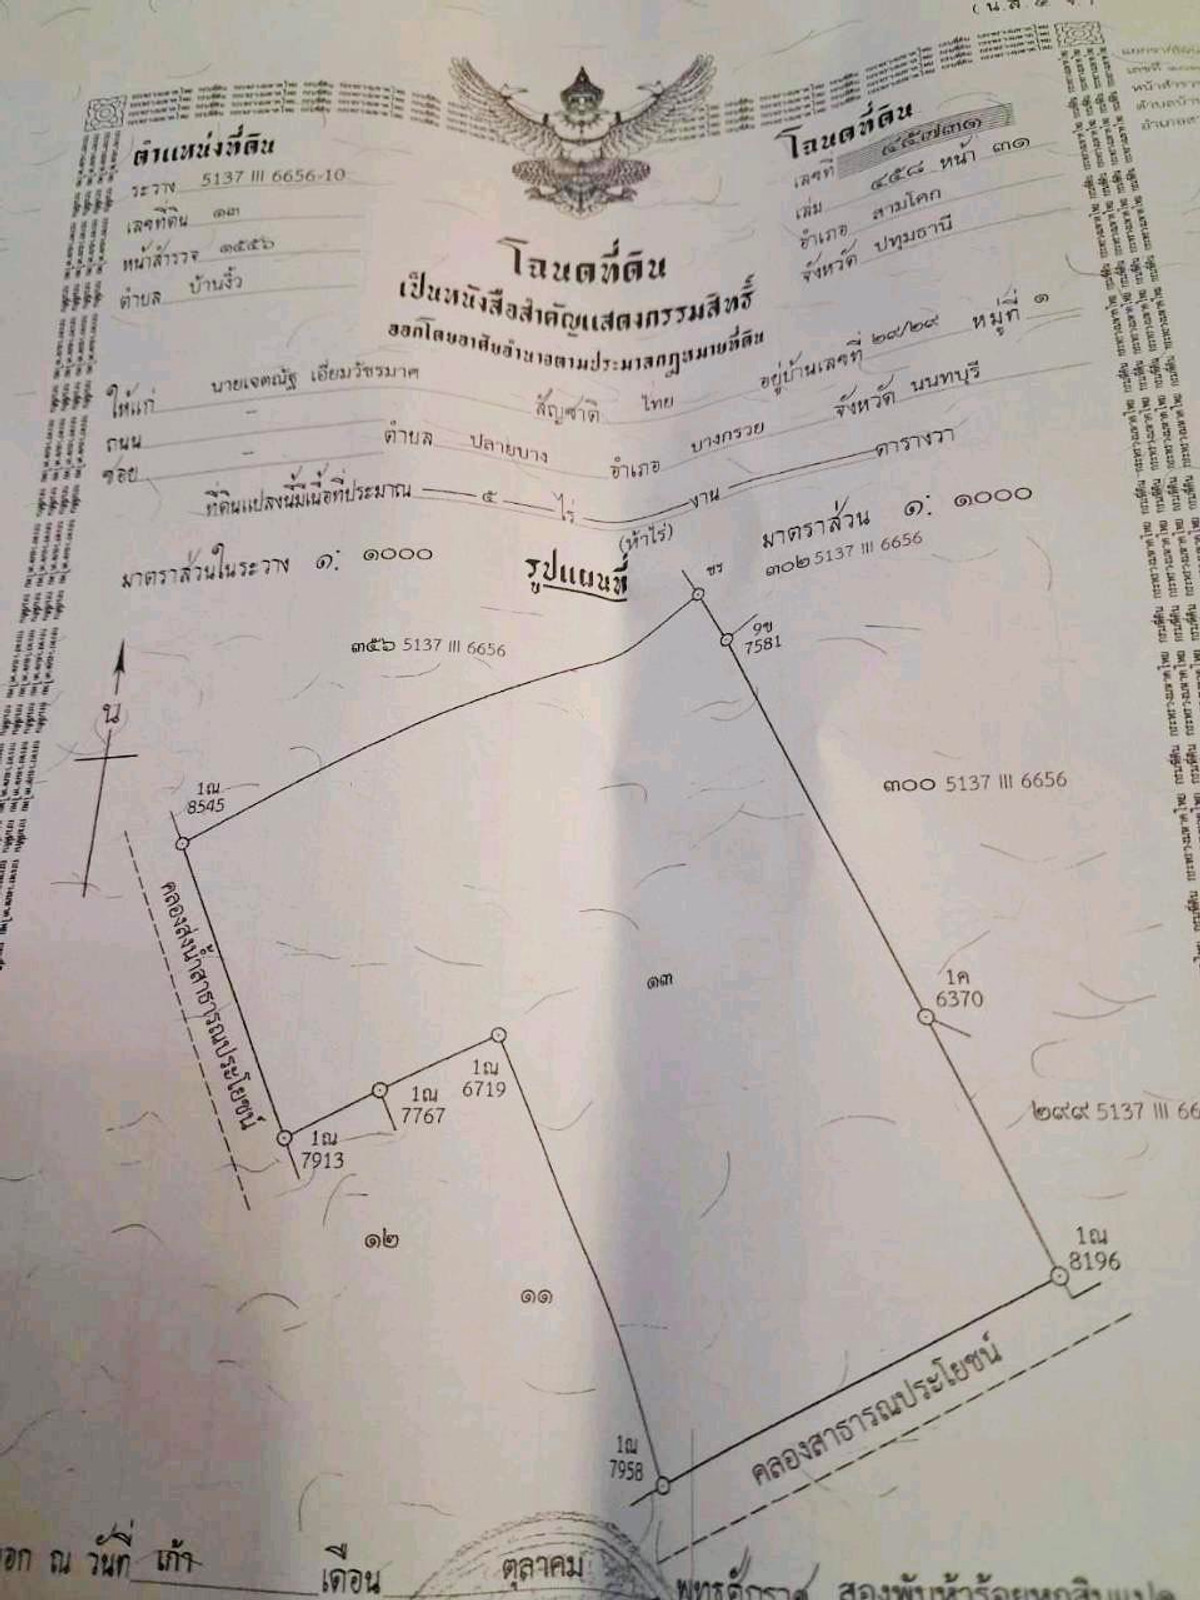 (น.ส. ๔ จ.)
ตำแหน่งที่ดิน
ระวาง 5137 III 6656-10
เลขที่ดิน ๑๓
หน้าสำรวจ ๑๕๕๖
ตำบล บ้านงิ้ว
โฉนดที่ดิน
เลขที่ ๔๕๗๓๑
เล่ม ๔๕๘ หน้า ๓๑
อำเภอ สามโคก
จังหวัด ปทุมธานี
โฉนดที่ดิน
เป็นหนังสือสำคัญแสดงกรรมสิทธิ์
ออกโดยอาศัยอำนาจตามประมวลกฎหมายที่ดิน
ให้แก่ นายเจตณัฐ เอี่ยมวัชรมาศ สัญชาติ ไทย อยู่บ้านเลขที่ ๒๙/๒๙ หมู่ที่ ๑
ถนน -
ซอย - ตำบล ปลายบาง อำเภอ บางกรวย จังหวัด นนทบุรี
ที่ดินแปลงนี้มีเนื้อที่ประมาณ ๕ ไร่ งาน ตารางวา
(ห้าไร่)
มาตราส่วนในระวาง ๑: ๑๐๐๐
รูปแผนที่
มาตราส่วน ๑: ๑๐๐๐
๓๐๒ 5137 III 6656
ชร
9ข
7581
๓๕๖ 5137 III 6656
น
1ณ
8545
๓๐๐ 5137 III 6656
คลองส่งน้ำสาธารณประโยชน์
๑๓
1ค
6370
1ณ
6719
1ณ
7767
1ณ
7913
๒๙๙ 5137 III 66
๑๒
๑๑
1ณ
8196
1ณ
7958
คลองสาธารณประโยชน์
ออก ณ วันที่ เก้า เดือน ตุลาคม พุทธศักราช สองพันห้าร้อยหกสิบแปด